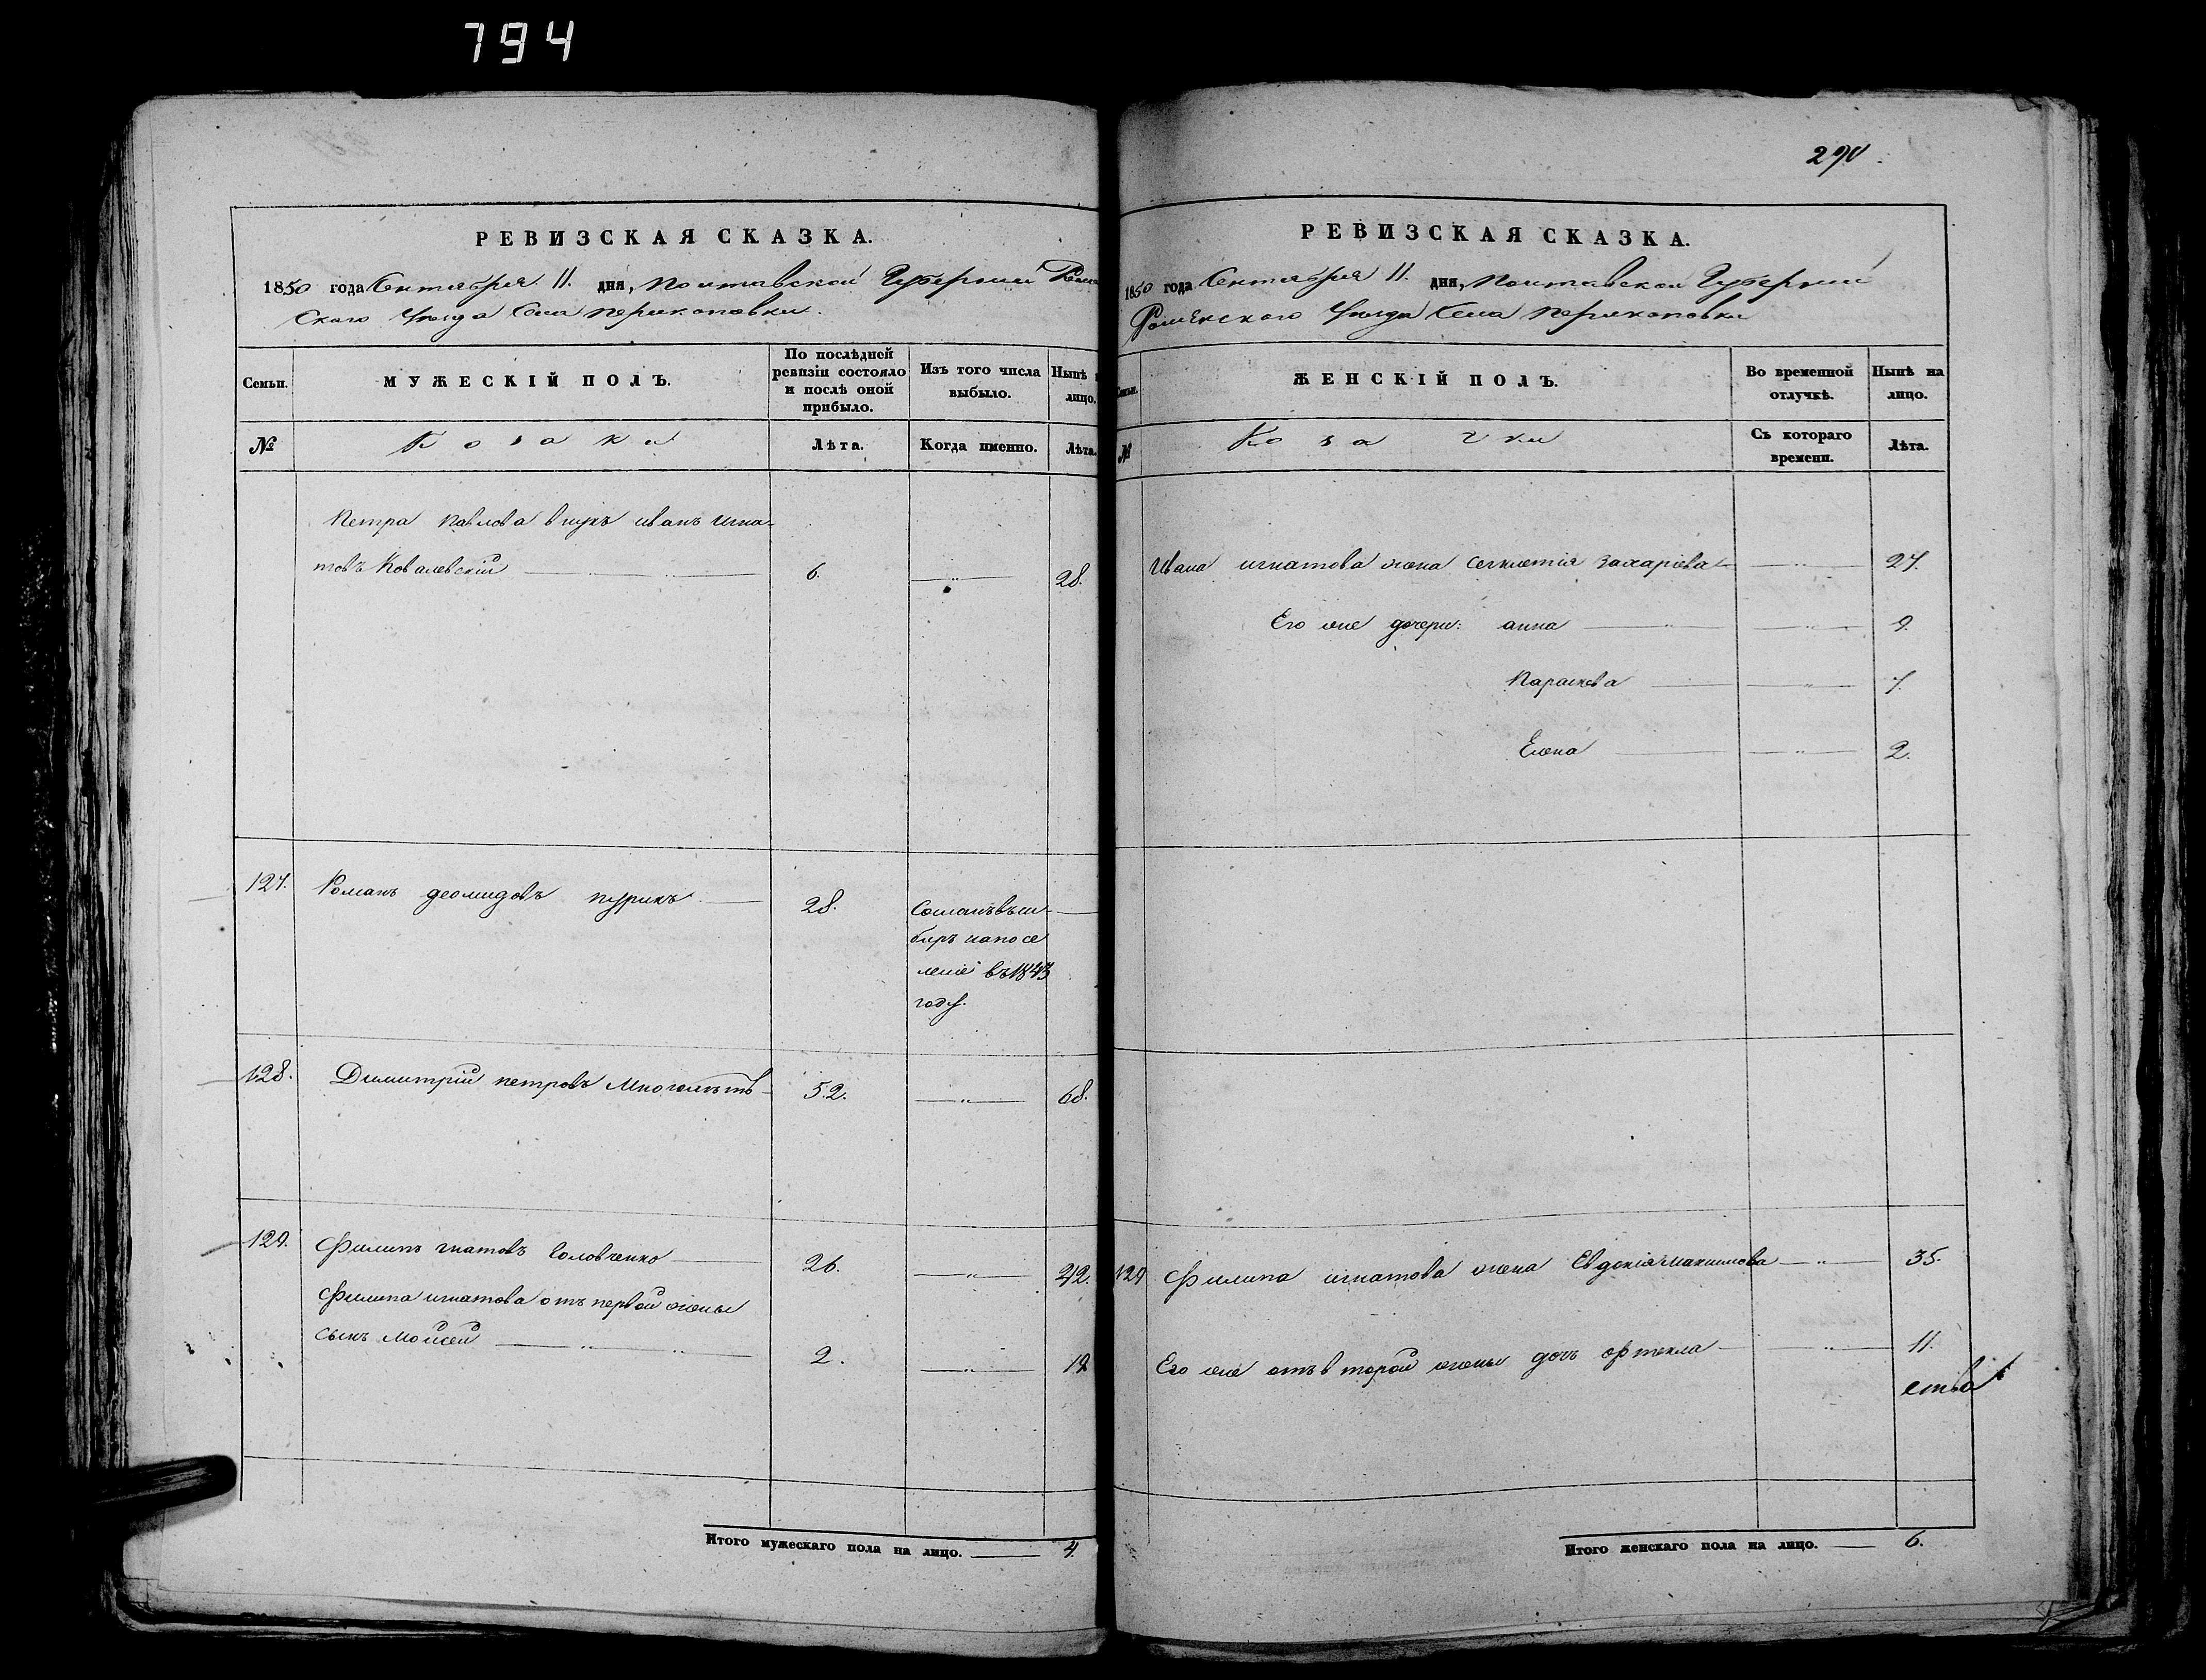 794
РЕВИЗСКАЯ СКАЗКА.
1850 года Сентября 11. дня, Полтавской Губернии Роме
Скаго Уезда Села Перекоповки.
Семьи.
МУЖЕСКІЙ ПОЛЪ.
По послѣдней ревизіи состояло и послѣ оной прибыло.
Изъ того числа выбыло.
Нынѣ лицо.
№
Козаки
Лѣта.
Когда именно.
Лѣта.
Петра Павлова внукъ иванъ игна-
товъ Ковалевскій 6. 28.
127. Романъ деомидовъ пурикъ 28. Сосланъ въ си-
биръ напосе
леніе въ 1843
году.
128. Димитрій петровъ 52. 68.
129. Филипъ гнатовъ Соловченко 26. 42.
Филипа игнатова отъ первой жены
сынъ Мойсей 2. 19
Итого мужескаго пола на лицо. 4.
290.
РЕВИЗСКАЯ СКАЗКА.
1850 года Сентября 11. дня, Полтавской Губерніи
Роменскаго Уезда Села Перекоповки
Семьи.
ЖЕНСКІЙ ПОЛЪ.
Во временной отлучкѣ.
Нынѣ на лицо.
№
Козачки
Съ котораго времени.
Лѣта.
Ивана игнатова жена Захаріева 27.
Его же дочери: анна 9.
Параскева 7.
Елена 2.
129 Филипа игнатова жена Евдокія максимова 35.
Его же отъ второй жены дочь фтекла 11.
ства
Итого женскаго пола на лицо. 6.